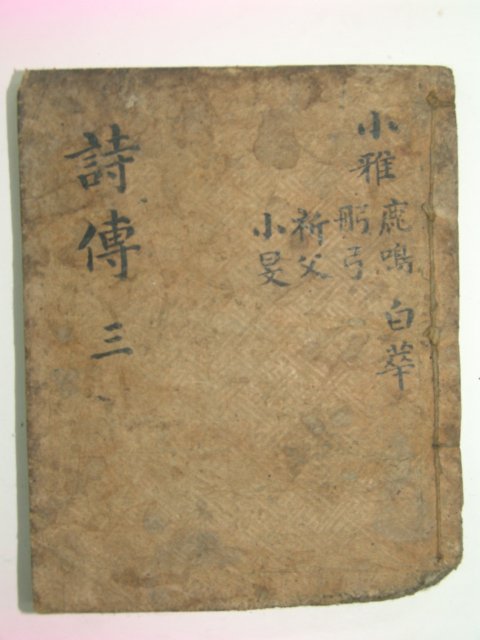 小雅鹿鳴 白華
彤弓
祈父
小旻
詩傳 三